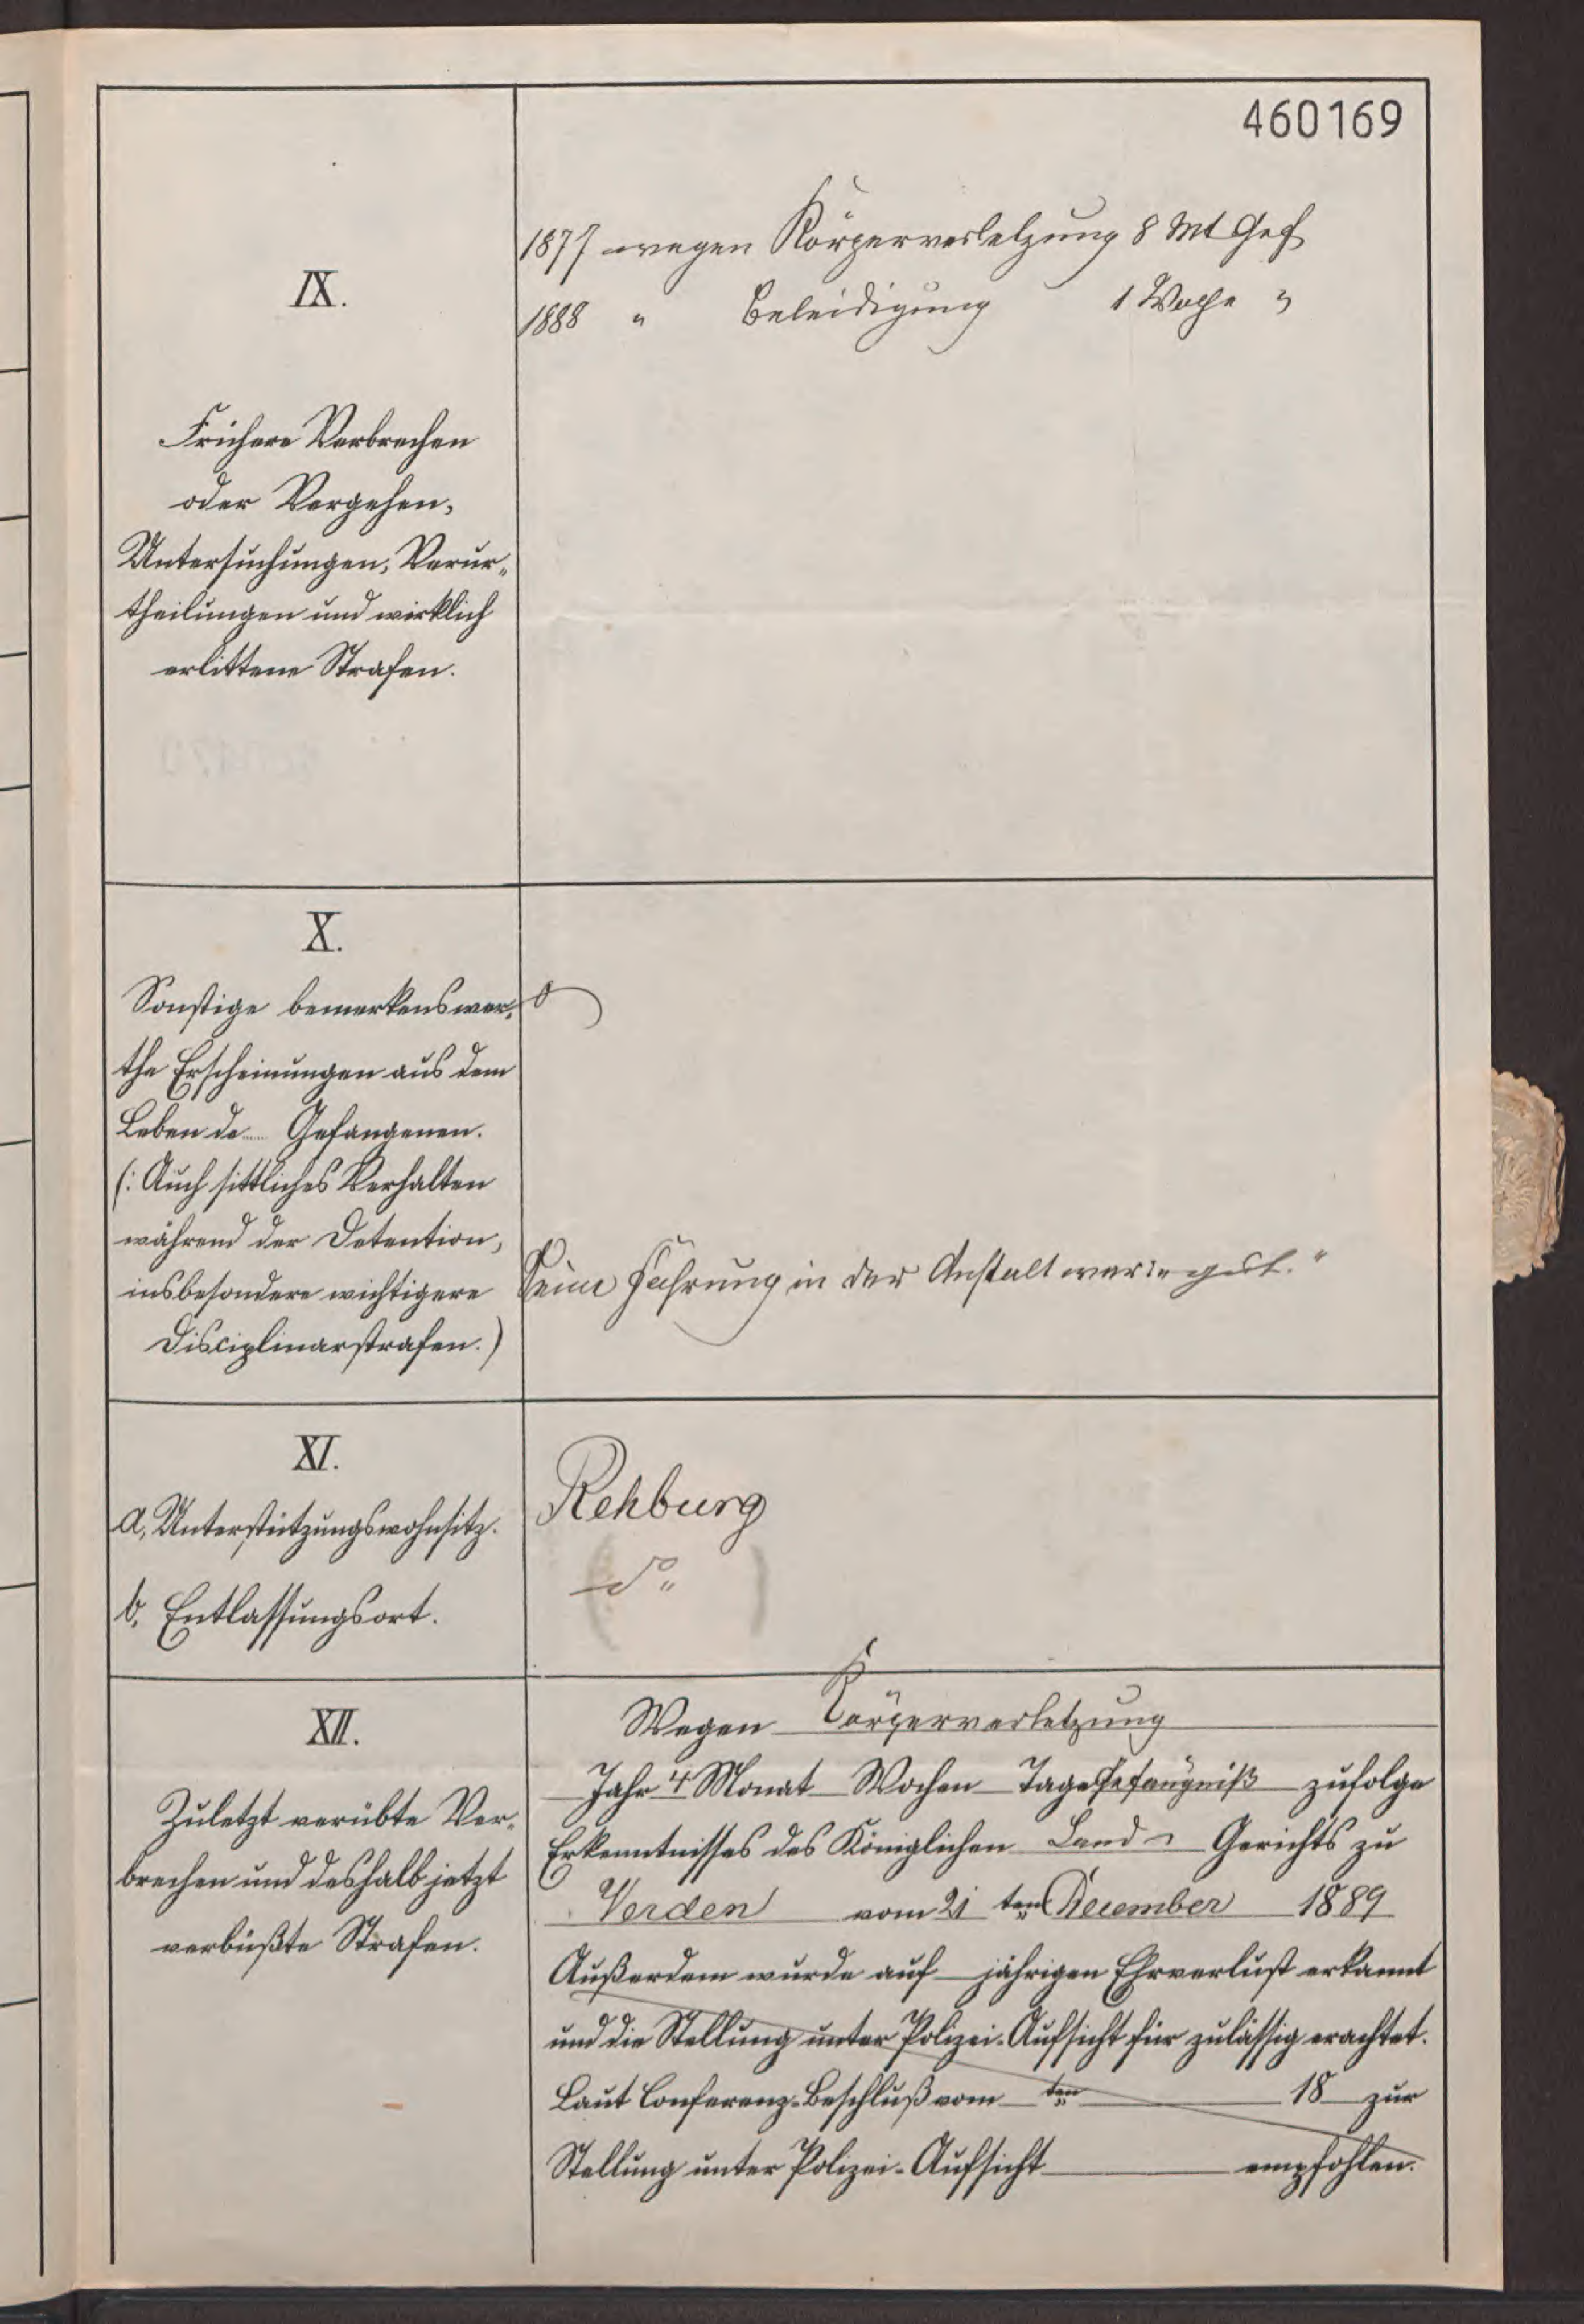 460169
IX.
Frühere Verbrechen
oder Vergehen,
Untersuchungen, Verur-
theilungen und wirklich
erlittene Strafen.
1877 wegen Körperverletzung 8 Mt Gef
1888 " Beleidigung 1 Woche "
X.
Sonstige bemerkenswer-
the Erscheinungen aus dem
Leben de Gefangenen.
(: Auch sittliches Verhalten
während der Detention,
insbesondere wichtigere
Disciplinarstrafen.)
0
Seine Führung in der Anstalt war: "gut."
XI.
a, Unterstützungswohnsitz.
b, Entlassungsort.
Rehburg
do "
XII.
Zuletzt verübte Ver-
brechen und deshalb jetzt
verbüßte Strafen.
Wegen Körperverletzung
Jahr 4 Monat Wochen Tage Gefängniß zufolge
Erkenntnisses des Königlichen Land - Gerichts zu
Verden vom 21 ten December 1889
Außerdem wurde auf jährigen Ehrverlust erkannt
und die Stellung unter Polizei-Aufsicht für zulässig erachtet.
Laut Conferenz-Beschluß vom ten 18 zur
Stellung unter Polizei-Aufsicht empfohlen.